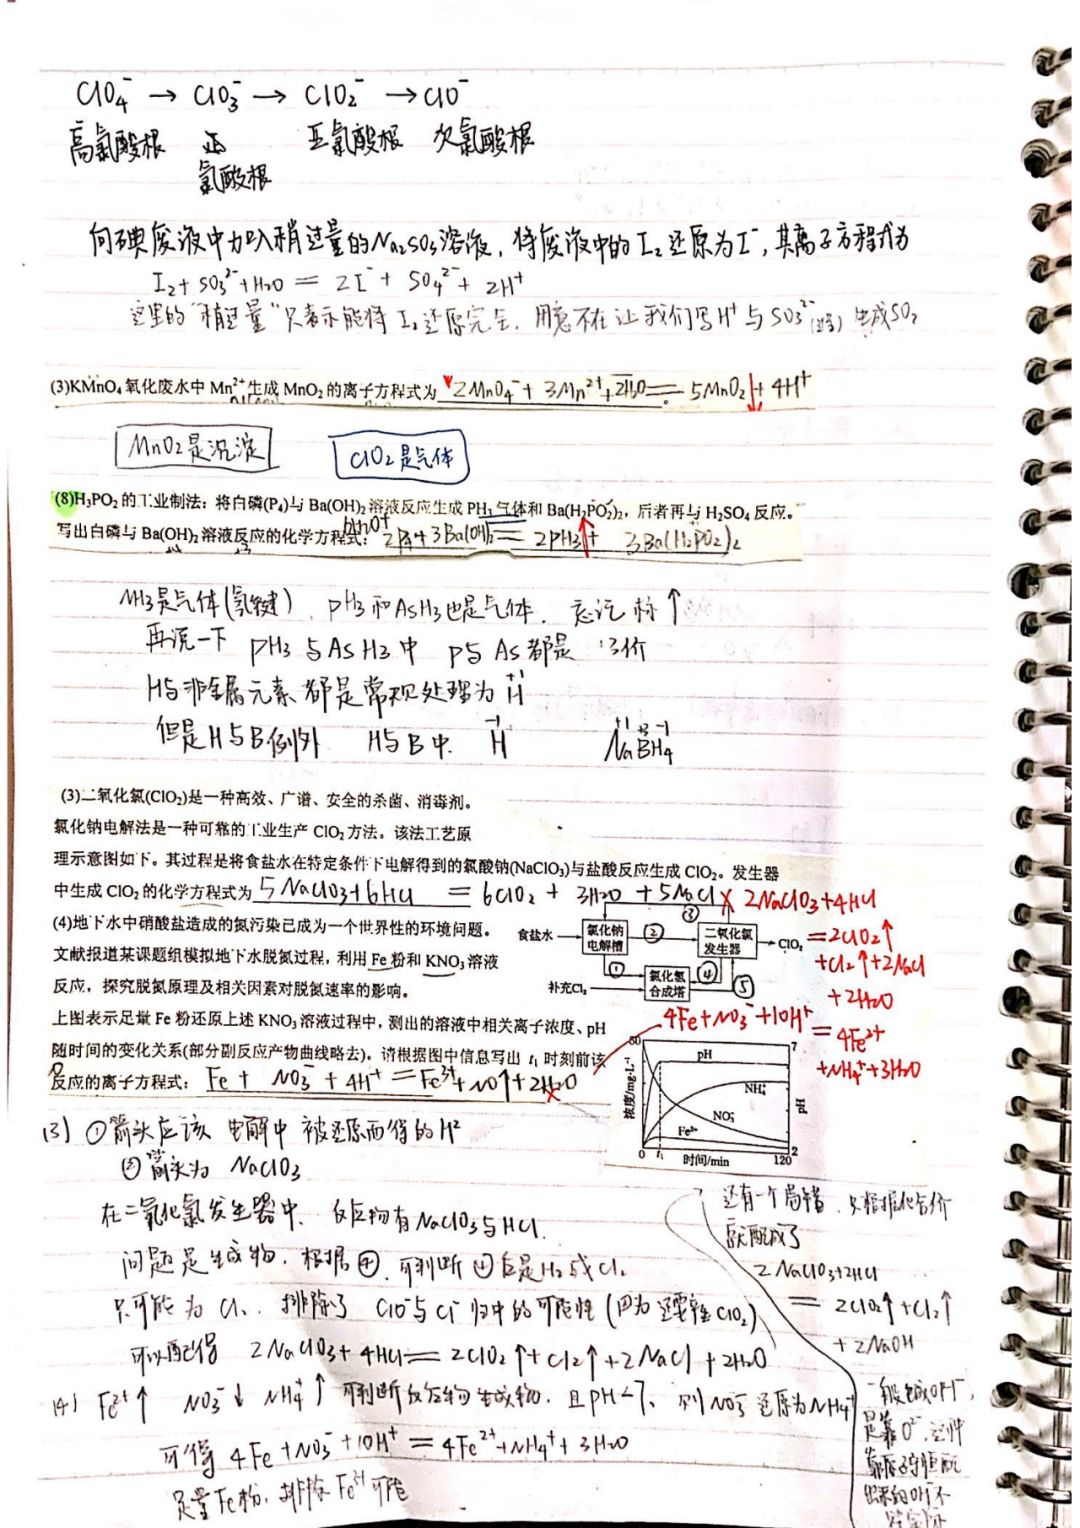 ClO₄⁻ → ClO₃⁻ → ClO₂⁻ → ClO⁻
高氯酸根 正 亚氯酸根 次氯酸根
氯酸根
向碘废液中加入稍过量的Na₂SO₃溶液，将废液中的I₂还原为I⁻，其离子方程式为
I₂+SO₃²⁻+H₂O = 2I⁻+SO₄²⁻+2H⁺
这里的“稍过量”只表示能将I₂还原完全，用意不在让我们写H⁺与SO₃²⁻生成SO₂
(3)KMnO₄氧化废水中Mn²⁺生成MnO₂的离子方程式为 2MnO₄⁻+3Mn²⁺+2H₂O=5MnO₂↓+4H⁺
MnO₂是沉淀 ClO₂是气体
(8)H₃PO₂的工业制法：将白磷(P₄)与Ba(OH)₂溶液反应生成PH₃气体和Ba(H₂PO₂)₂，后者再与H₂SO₄反应。
6H₂O+
写出白磷与Ba(OH)₂溶液反应的化学方程式：2P₄+3Ba(OH)₂=2PH₃↑+3Ba(H₂PO₂)₂
NH₃是气体(氢键)，PH₃和AsH₃也是气体，忘记标↑
再说一下 PH₃与AsH₃中 P与As都是-3价
H与非金属元素都是常规处理为 +1 H
但是H与B例外 H与B中 -1 H +1 +3 -1 NaBH₄
(3)二氧化氯(ClO₂)是一种高效、广谱、安全的杀菌、消毒剂。
氯化钠电解法是一种可靠的工业生产ClO₂方法。该法工艺原
理示意图如下。其过程是将食盐水在特定条件下电解得到的氯酸钠(NaClO₃)与盐酸反应生成ClO₂。发生器
中生成ClO₂的化学方程式为 5NaClO₃+6HCl = 6ClO₂+3H₂O+5NaCl × 2NaClO₃+4HCl
=2ClO₂↑
+Cl₂↑+2NaCl
+2H₂O
食盐水 氯化钠电解槽 ② ③ 二氧化氯发生器 ClO₂
① 氯化氢合成塔 ④ ⑤
补充Cl₂
(4)地下水中硝酸盐造成的氮污染已成为一个世界性的环境问题。
文献报道某课题组模拟地下水脱氮过程，利用Fe粉和KNO₃溶液
反应，探究脱氮原理及相关因素对脱氮速率的影响。
上图表示足量Fe粉还原上述KNO₃溶液过程中，测出的溶液中相关离子浓度、pH
随时间的变化关系(部分副反应产物曲线略去)。请根据图中信息写出t₁时刻前该
反应的离子方程式：Fe+NO₃⁻+4H⁺=Fe³⁺+NO↑+2H₂O ×
4Fe+NO₃⁻+10H⁺=4Fe²⁺
+NH₄⁺+3H₂O
80 7
pH
NH₄⁺
NO₃⁻
Fe²⁺
浓度/mg·L⁻¹ pH
0 t₁ 时间/min 120 2
(3) ①箭头应该电解中被还原而得的H₂
②箭头为 NaClO₃
在二氧化氯发生器中，反应物有NaClO₃与HCl
问题是生成物，根据④，可判断④应是H₂或Cl₂
只可能为Cl₂，排除了ClO⁻与Cl⁻归中的可能性(因为还要产生ClO₂)
可以配得 2NaClO₃+4HCl=2ClO₂↑+Cl₂↑+2NaCl+2H₂O
(4) Fe²⁺↑ NO₃⁻↓ NH₄⁺↑ 可判断反应物生成物，且pH<7，则NO₃⁻还原为NH₄⁺
可得 4Fe+NO₃⁻+10H⁺=4Fe²⁺+NH₄⁺+3H₂O
足量Fe粉，排除Fe³⁺可能
还有一个易错，只根据化合价
就配成了
2NaClO₃+2HCl
= 2ClO₂↑+Cl₂↑
+2NaOH
一般生成OH⁻，
是靠O²⁻，这种